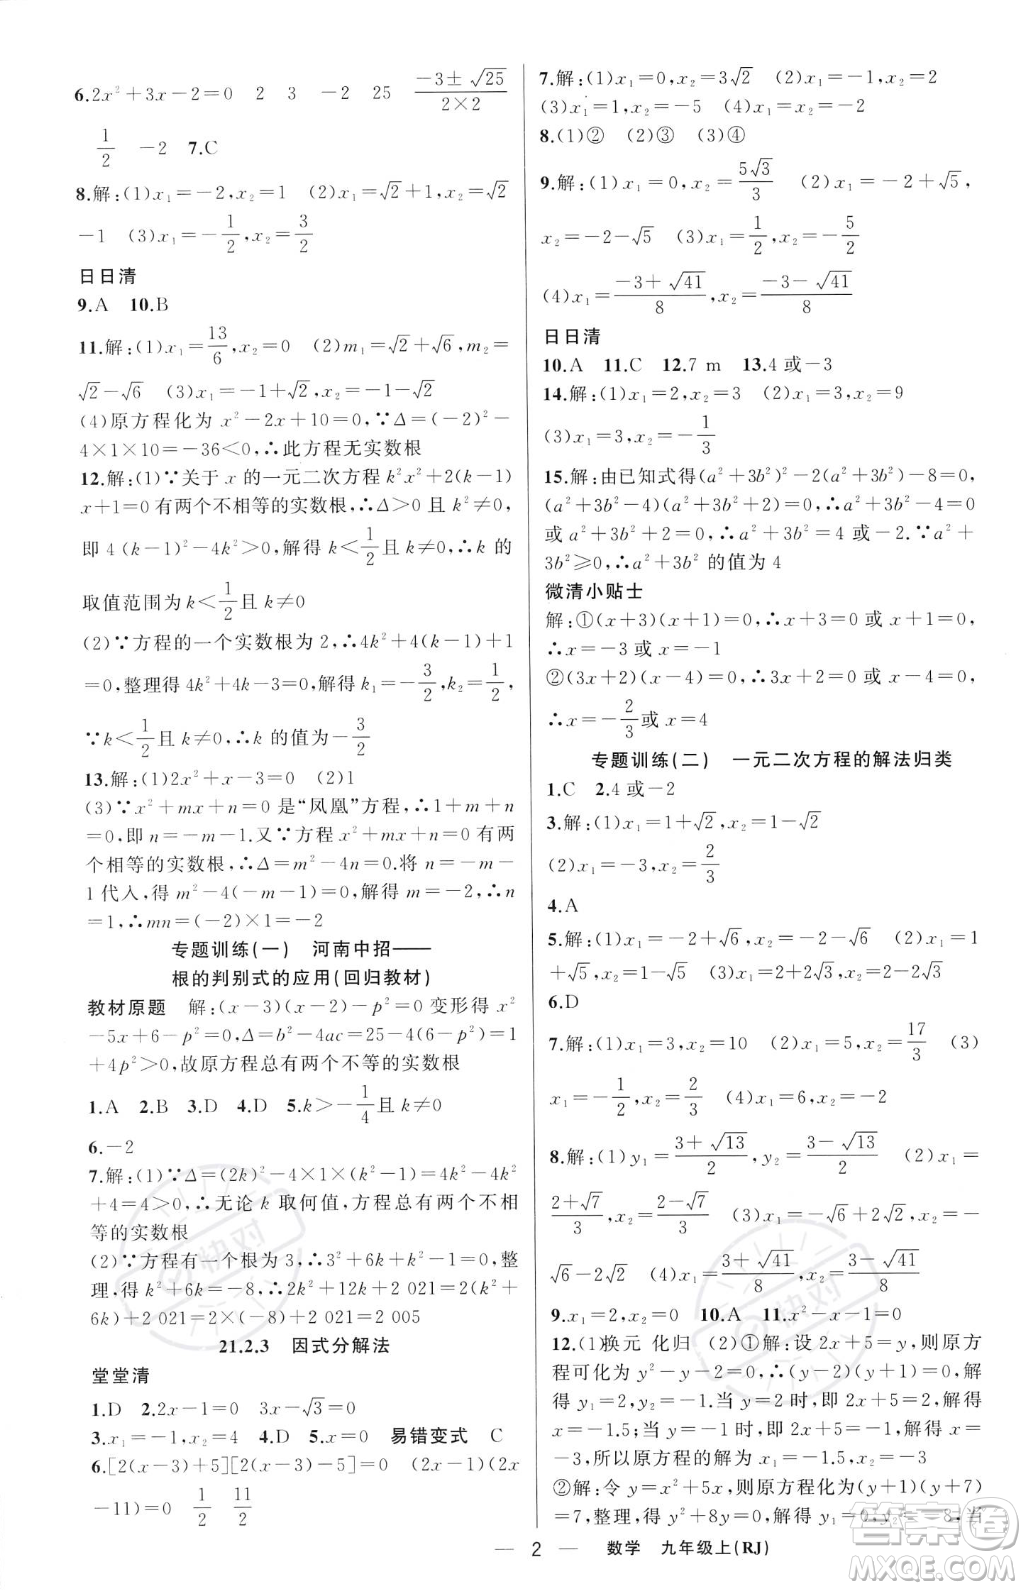 6.2x²+3x-2=0  2  3  -2  25  (-3±√25)/(2×2)
1/2  -2  7.C
8.解:(1)x₁=-2,x₂=1  (2)x₁=√2+1,x₂=√2
-1  (3)x₁=-1/2,x₂=3/2
日日清
9.A  10.B
11.解:(1)x₁=13/6,x₂=0  (2)m₁=√2+√6,m₂=
√2-√6  (3)x₁=-1+√2,x₂=-1-√2
(4)原方程化为 x²-2x+10=0,∵Δ=(-2)²-
4×1×10=-36<0,∴此方程无实数根
12.解:(1)∵关于 x 的一元二次方程 k²x²+2(k-1)
x+1=0 有两个不相等的实数根,∴Δ>0 且 k²≠0,
即 4(k-1)²-4k²>0,解得 k<1/2且 k≠0,∴k 的
取值范围为 k<1/2且 k≠0
(2)∵方程的一个实数根为 2,∴4k²+4(k-1)+1
=0,整理得 4k²+4k-3=0,解得 k₁=-3/2,k₂=1/2,
∵k<1/2且 k≠0,∴k 的值为-3/2
13.解:(1)2x²+x-3=0  (2)1
(3)∵x²+mx+n=0 是“凤凰”方程,∴1+m+n
=0,即 n=-m-1.又∵方程 x²+mx+n=0 有两
个相等的实数根,∴Δ=m²-4n=0.将 n=-m-
1代入,得 m²-4(-m-1)=0,解得 m=-2,∴n
=1,∴mn=(-2)×1=-2
专题训练(一)  河南中招——
根的判别式的应用(回归教材)
教材原题  解:(x-3)(x-2)-p²=0 变形得 x²
-5x+6-p²=0,Δ=b²-4ac=25-4(6-p²)=1
+4p²>0,故原方程总有两个不等的实数根
1.A  2.B  3.D  4.D  5.k>-1/4且 k≠0
6.-2
7.解:(1)∵Δ=(2k)²-4×1×(k²-1)=4k²-4k²
+4=4>0,∴无论 k 取何值,方程总有两个不相
等的实数根
(2)∵方程有一个根为 3,∴3²+6k+k²-1=0,整
理,得 k²+6k=-8,∴2k²+12k+2 021=2(k²+
6k)+2 021=2×(-8)+2 021=2 005
21.2.3  因式分解法
堂堂清
1.D  2.2x-1=0  3x-√3=0
3.x₁=-1,x₂=4  4.D  5.x=0  易错变式  C
6.[2(x-3)+5][2(x-3)-5]=0  (2x-1)(2x
-11)=0  1/2  11/2
7.解:(1)x₁=0,x₂=3√2  (2)x₁=-1,x₂=2
(3)x₁=1,x₂=-5  (4)x₁=x₂=-2
8.(1)②  (2)③  (3)④
9.解:(1)x₁=0,x₂=5√3/3  (2)x₁=-2+√5,
x₂=-2-√5  (3)x₁=1/2,x₂=-5/2
(4)x₁=(-3+√41)/8,x₂=(-3-√41)/8
日日清
10.A  11.C  12.7 m  13.4 或-3
14.解:(1)x₁=2,x₂=3  (2)x₁=3,x₂=9
(3)x₁=3,x₂=-1/3
15.解:由已知式得(a²+3b²)²-2(a²+3b²)-8=0,
(a²+3b²-4)(a²+3b²+2)=0,∴a²+3b²-4=0
或 a²+3b²+2=0,∴a²+3b²=4 或-2.∵a²+
3b²≥0,∴a²+3b² 的值为 4
微清小贴士
解:①(x+3)(x+1)=0,∴x+3=0 或 x+1=0,
∴x=-3 或 x=-1
②(3x+2)(x-4)=0,∴3x+2=0 或 x-4=0,
∴x=-2/3或 x=4
专题训练(二)  一元二次方程的解法归类
1.C  2.4 或-2
3.解:(1)x₁=1+√2,x₂=1-√2
(2)x₁=-3,x₂=2/3
4.A
5.解:(1)x₁=-2+√6,x₂=-2-√6  (2)x₁=1
+√5,x₂=1-√5  (3)x₁=-2+2√3,x₂=-2-2√3
6.D
7.解:(1)x₁=3,x₂=10  (2)x₁=5,x₂=17/3  (3)
x₁=-1/2,x₂=2/3  (4)x₁=6,x₂=-2
8.解:(1)y₁=(3+√13)/2,y₂=(3-√13)/2  (2)x₁=
(2+√7)/3,x₂=(2-√7)/3  (3)x₁=-√6+2√2,x₂=-
√6-2√2  (4)x₁=(-3+√41)/8,x₂=(-3-√41)/8
9.x₁=3,x₂=0  10.A  11.x²-x-1=0
12.(1)换元  化归  (2)①解:设 2x+5=y,则原方
程可化为 y²-y-2=0,∴(y-2)(y+1)=0,解
得 y₁=2,y₂=-1.当 y=2 时,即 2x+5=2,解得 x
=-1.5;当 y=-1 时,即 2x+5=-1,解得 x=
-3,所以原方程的解为 x₁=-1.5,x₂=-3
②解:令 y=x²+5x,则原方程化为(y+1)(y+7)
=7,整理,得 y²+8y=0,解得 y₁=0,y₂=-8.当
— 2 —  数学  九年级上(RJ)
快对
答案圈
MXQE.COM